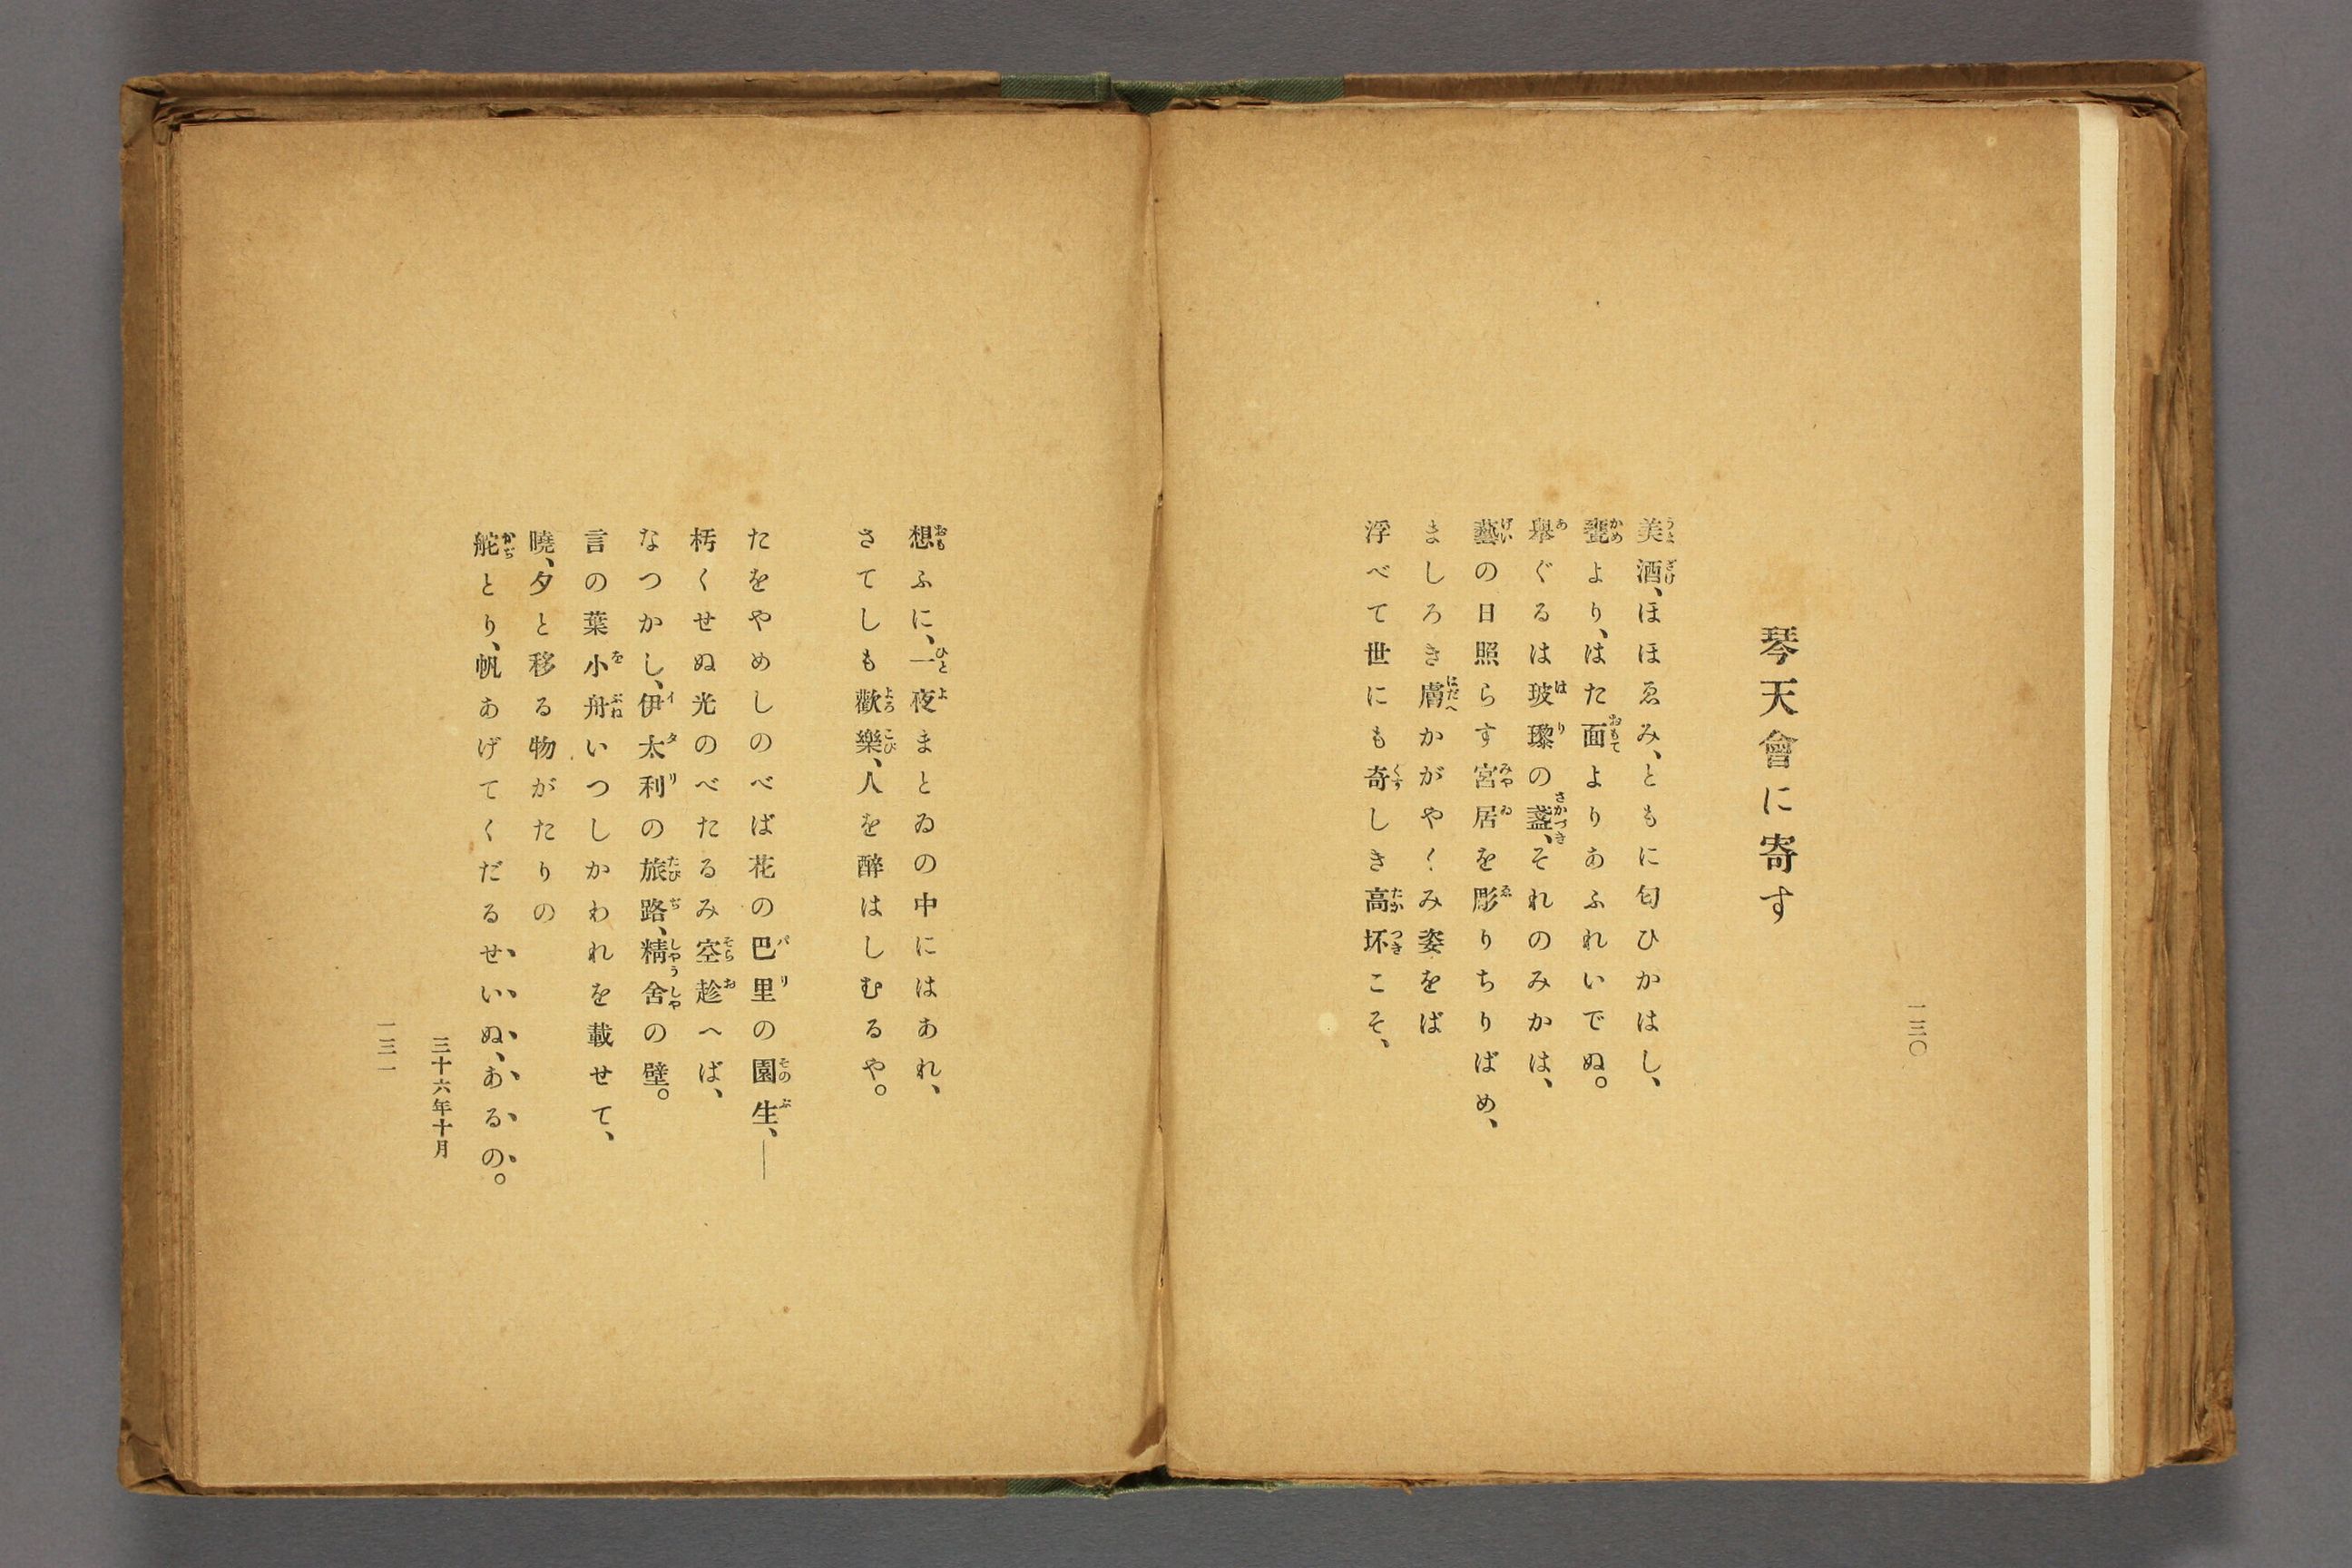 一三〇
琴天會に寄す
美酒、ほほゑみ、ともに匂ひかはし、
甕より、はた面よりあふれいでぬ。
擧ぐるは玻瓈の盞、それのみかは、
藝の日照らす宮居を彫りちりばめ、
ましろき膚かがやくみ姿をば
浮べて世にも奇しき高坏こそ、
想ふに、一夜まとゐの中にはあれ、
さてしも歡樂、人を醉はしむるや。
たをやめしのべば花の巴里の園生、―
朽くせぬ光のべたるみ空趁へば、
なつかし、伊太利の旅路、精舍の壁。
言の葉小舟いつしかわれを載せて、
曉、夕と移る物がたりの
舵とり、帆あげてくだるせいぬ、あるの。
三十六年十月
一三一